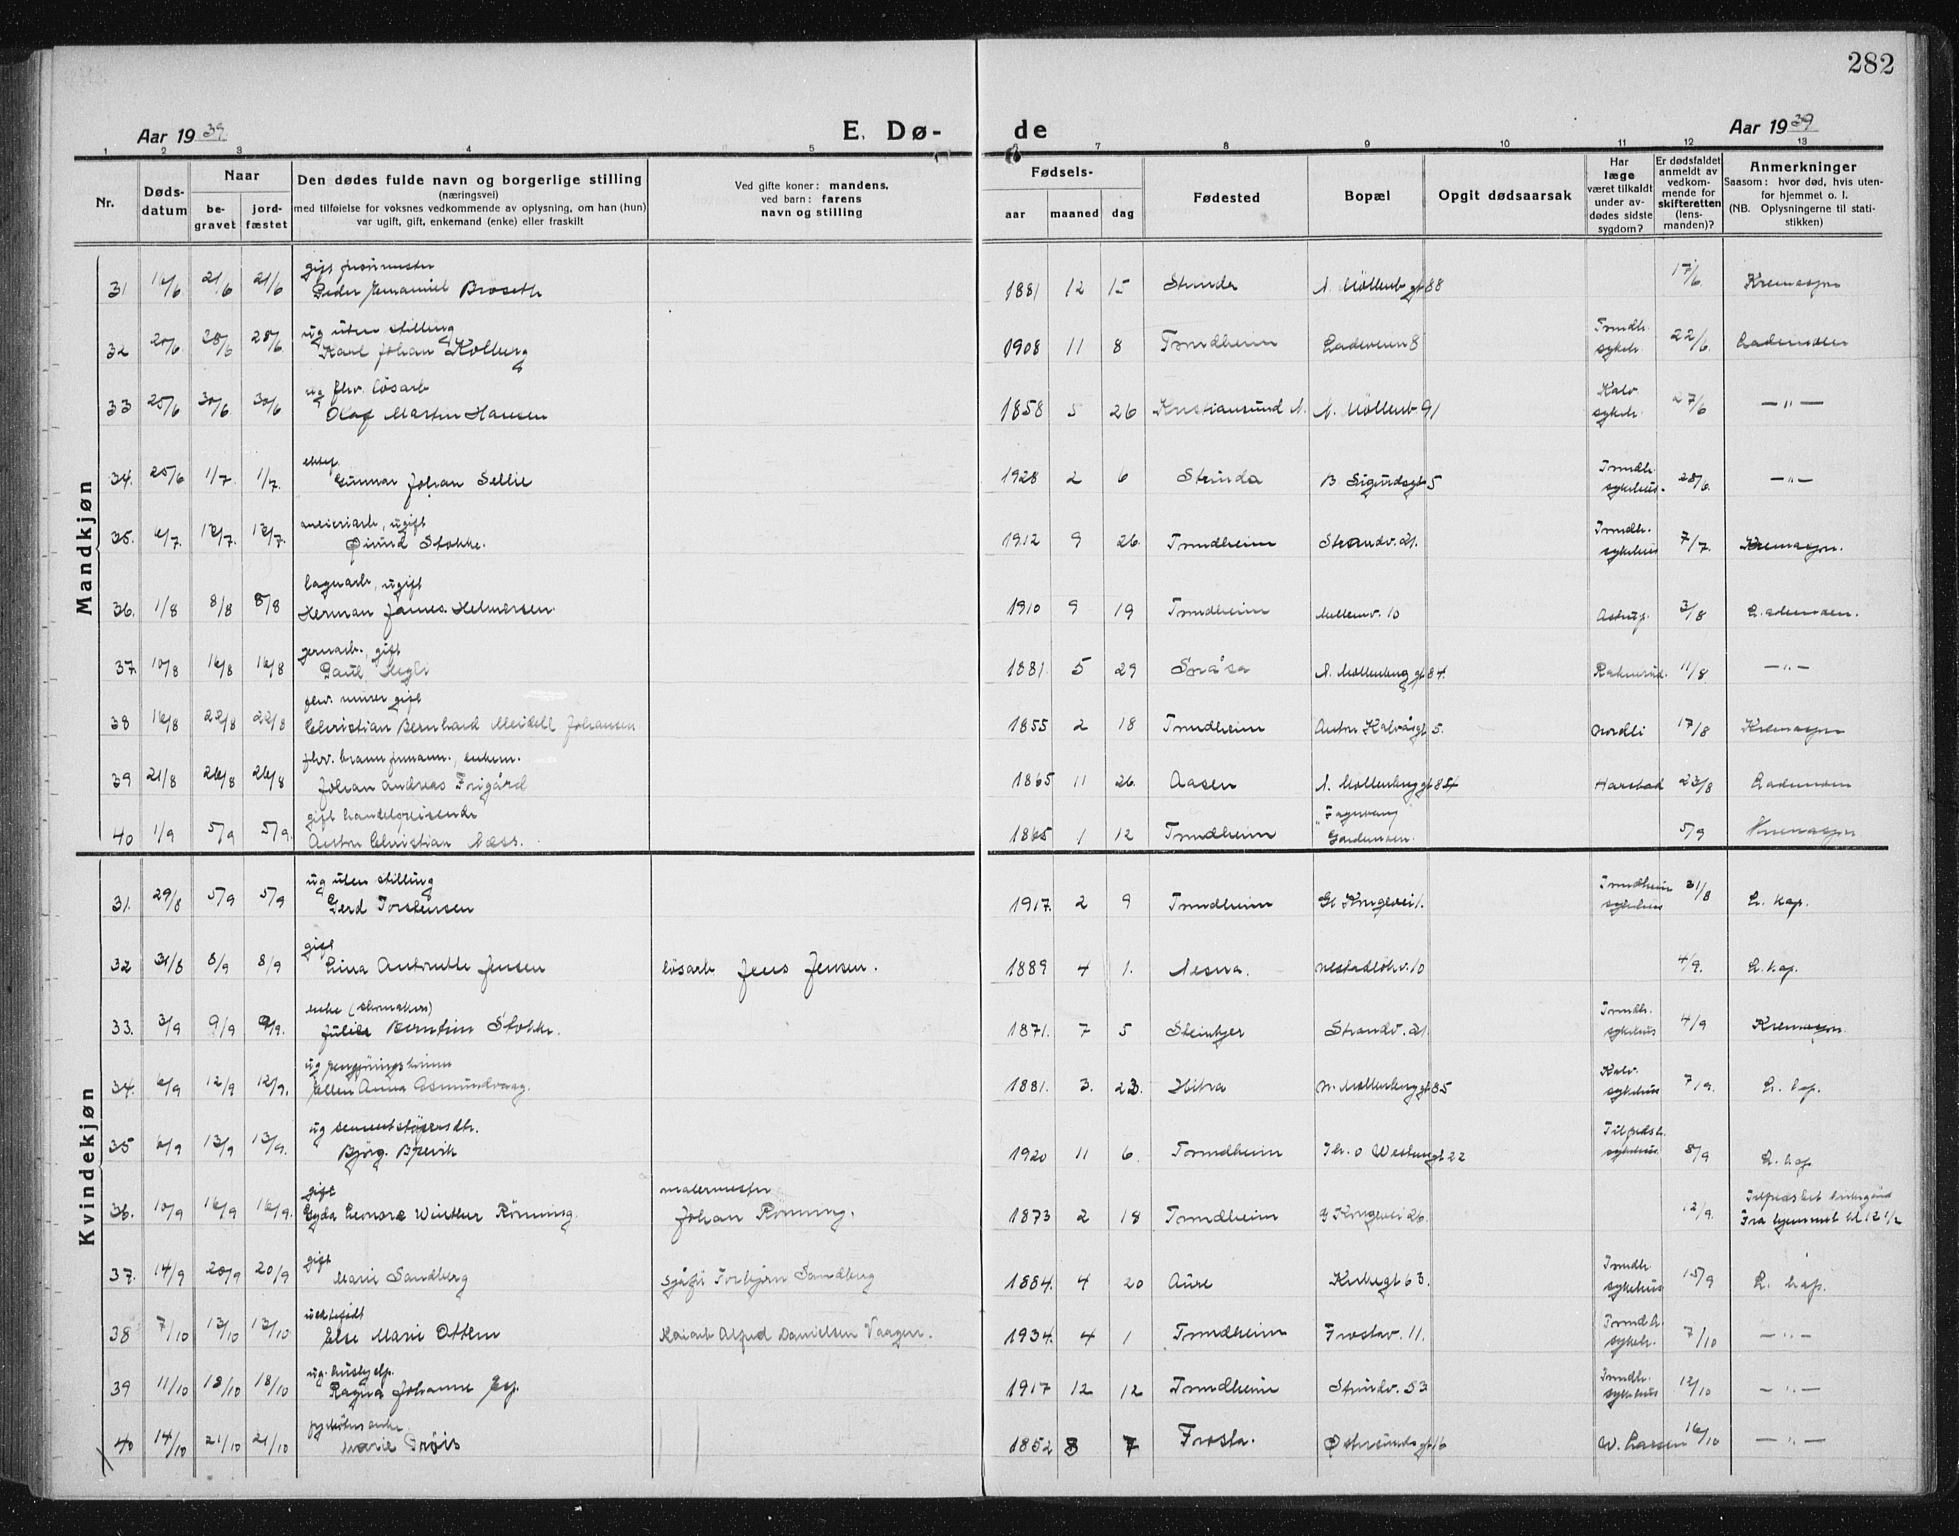 282
Aar 1939
E. Dø-
de
Aar 1939
1 2 3 4 5 6 7 8 9 10 11 12 13
Nr.
Døds-
datum
Naar
be-
gravet
jord-
fæstet
Den dødes fulde navn og borgerlige stilling
(næringsvei)
med tilføielse for voksnes vedkommende av oplysning, om han (hun)
var ugift, gift, enkemand (enke) eller fraskilt
Ved gifte koner: mandens,
ved barn: farens
navn og stilling
Fødsels-
aar
maaned
dag
Fødested
Bopæl
Opgit dødsaarsak
Har
læge
været tilkaldt
under av-
dødes sidste
sygdom?
Er dødsfaldet
anmeldt av
vedkom-
mende for
skifteretten
(lens-
manden)?
Anmerkninger
Saasom: hvor død, hvis uten-
for hjemmet o. l.
(NB. Oplysningerne til stati-
stikken)
Mandkjøn
gift
31 16/6 21/6 21/6 Peder Emanuel Brøseth 1881 12 15 Strinda N. Møllenb.gt 88 17/6 Kremasjon
ug uten stilling
32 20/6 28/6 28/6 Karl Johan Kolberg 1908 11 8 Trondheim Ladeveien 8 Trondh. sykeh. 22/6 Lademoen
ug fhv. løsarb
33 25/6 30/6 30/6 Olaf Martin Hansen 1858 5 26 Kristiansund N. N. Møllenb. 91 Kalv. sykeh. 27/6 — " —
ektef.
34. 25/6 1/7 1/7. Gunnar Johan Sellie 1928 2 6 Strinda B. Sigurdsgt 5 Trondh. sykehus. 28/6. — " —
ugift
35. 6/7. 12/7. 12/7. Øivind Stokke. 1912 9 26. Trondheim Strandv. 21. Trondh. sykehus 7/7. Kremasjon.
lagerarb, ugift
36. 1/8 8/8 8/8 Herman James Helmersen. 1910 9 19 Trondheim Mellemv. 10 Astrup. 3/8 Lademoen.
jernarb., gift
37. 10/8 16/8 16/8 Paul 1881. 5 29 Snåsa N. Møllenberg gt 84. 11/8. — " —
fhv. murer gift
38 16/8 22/8 22/8 Christian Bernhard Meidell Johansen 1855 2 18 Trondheim Anton Kalvåsgt 5. Nordli 17/8 Kremasjon
fhv. brannformann, enkem.
39 21/8 26/8 26/8 Johan Andreas Frigård 1865 11 26. Aasen N. Møllenberggt 84 Harstad 23/8 Lademoen
gift handelsreisende
40 1/9 5/9 5/9. Anton Christian Næss. 1865 1 12 Trondheim 5/9 Kremasjon
Kvindekjøn
ug uten stilling
31. 29/8 5/9 5/9 Gerd Torstensen 1917. 2 9 Trondheim Gl Kongevei 1. Trondheim sykehus 31/8 L. kap.
gift
32 31/8 8/9 8/9 Lina Antonette Jensen løsarb Jens Jensen. 1889 4 1. Nesna. 4/9. L. kap.
enke (skomakers)
33. 3/9 9/9 9/9. Julie Berntine Stokke. 1871. 7 5 Steinkjer Strandv. 21. Trondh. sykehus 4/9 Kremasjon.
ug rengjøringskvinne
34. 6/9 12/9 12/9. Ellen Anna Asmundvaag. 1881. 3. 23. Hitra N. Møllenberggt 85 Kalv. sykehus 7/9. L. kap.
ug sementstøpersdtr.
35 6/9 13/9 13/9. Bjørg Brevik 1920 11 6. Trondheim Th. o Westensgt 22 sykehus. 8/9 L. kap
gift malermester
36. 10/9 16/9 16/9. Gyda Leonore Winther Rønning. Johan Rønning. 1873 2 18 Trondheim G Kongevei 26. 12/9. Tilfredshet kirkegård
Fra hjemmet kl 12 1/2
gift
37. 14/9 20/9 20/9 Marie Sandberg Sjåfø Torbjørn Sandberg 1884. 4 20 Aure Kirkegt 63. Trondh sykehus 15/9 L. kap.
uektefødt
38 7/10 13/10 13/10 Else Marie Ottem Kaiarb Alfred Danielsen Vaagen. 1934. 4 1 Trondheim Frostav. 11. Trondh. sykeh. 7/10 — " —
ug. hushjelp.
39 11/10 18/10 18/10 Ragna Johanne Esp. 1917 12 12 Trondheim Strandv. 53 Trondh. sykehus 12/10 — " —
40 14/10 21/10 21/10 Marie Trøis 1852 8 7 Frosta. Østersundsgt 16 W. Larsen 16/10 — " —